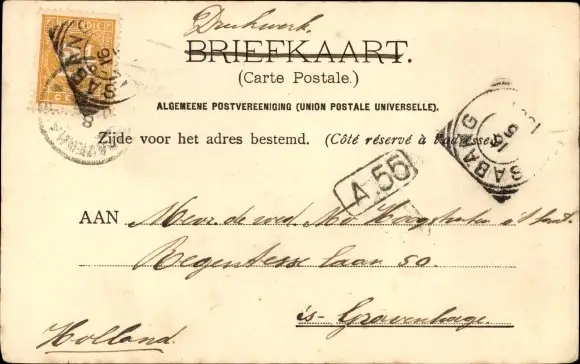 Drukwerk.
BRIEFKAART.
(Carte Postale.)
ALGEMEENE POSTVEREENIGING (UNION POSTALE UNIVERSELLE).
Zijde voor het adres bestemd. (Côté réservé à l'adresse.)
SABANG
SABANG
A.55
AAN Mevr. de wed.
Regentesse laan 50.
's-Gravenhage.
Holland.